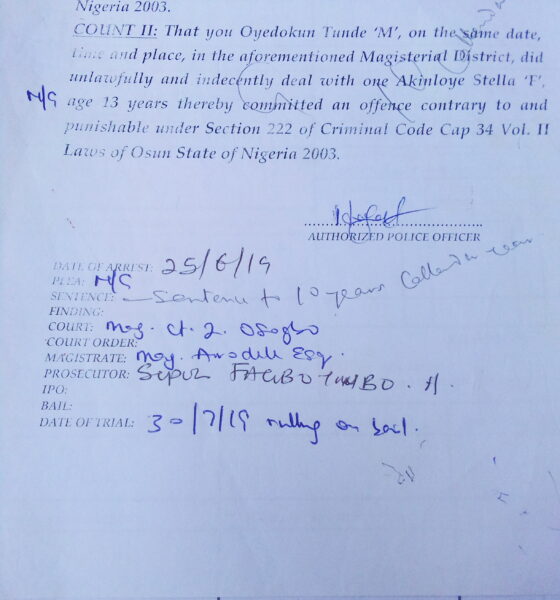 Nigeria 2003.
COUNT II: That you Oyedokun Tunde 'M', on the same date,
time and place, in the aforementioned Magisterial District, did
unlawfully and indecently deal with one Akinloye Stella 'F',
N/G age 13 years thereby committed an offence contrary to and
punishable under Section 222 of Criminal Code Cap 34 Vol. II
Laws of Osun State of Nigeria 2003.
AUTHORIZED POLICE OFFICER
DATE OF ARREST: 25/6/19
PLEA: N/G
SENTENCE: Sentence to 10 years Callendar year
FINDING:
COURT: Mag. Ct. 2. Osogbo
COURT ORDER:
MAGISTRATE: Mag. Esq.
PROSECUTOR:
IPO:
BAIL:
DATE OF TRIAL: 30/7/19 ruling on bail.